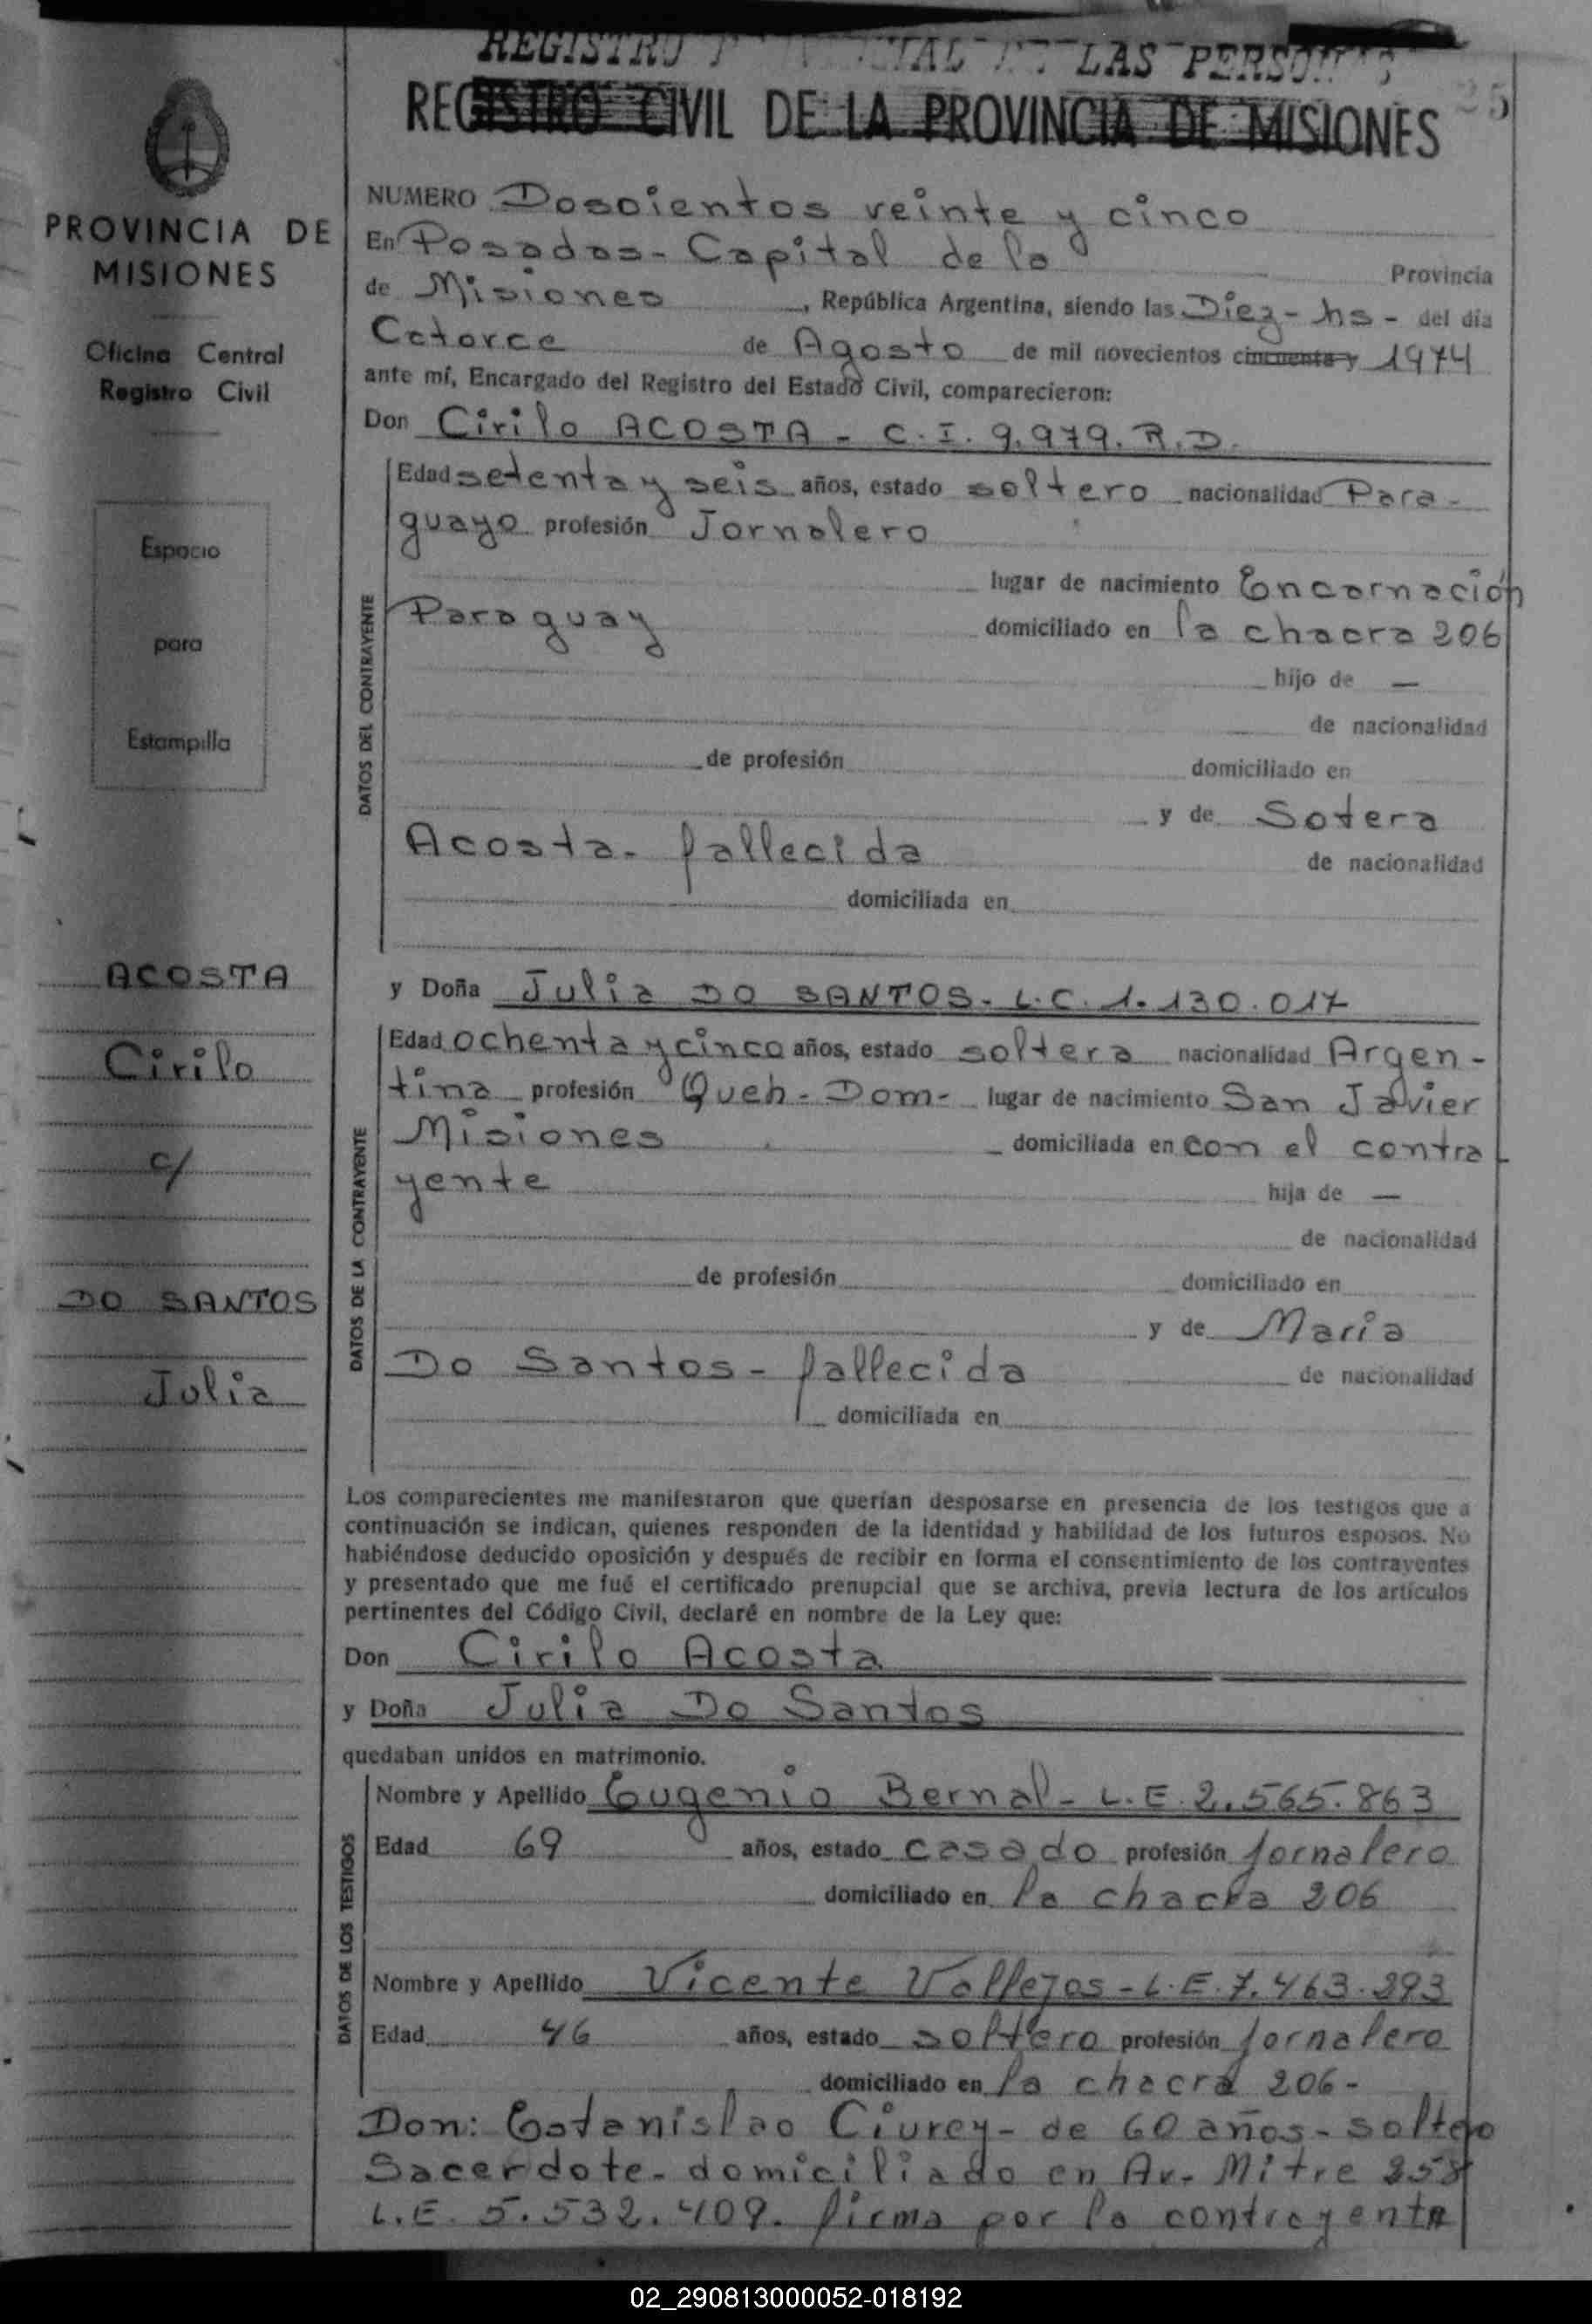 REGISTRO LAS PERSONAS
REGISTRO CIVIL DE LA PROVINCIA DE MISIONES
PROVINCIA DE
MISIONES
Oficina Central
Registro Civil
Espacio
para
Estampilla
ACOSTA
Cirilo
c/
DO SANTOS
Julia
NUMERO Doscientos veinte y cinco
En Posadas - Capital de la Provincia
de Misiones, República Argentina, siendo las Diez - hs - del día
Catorce de Agosto de mil novecientos cincuenta y 1974
ante mí, Encargado del Registro del Estado Civil, comparecieron:
Don Cirilo ACOSTA - C. I. 9.979. R. D.
DATOS DEL CONTRAYENTE
Edad setenta y seis años, estado soltero nacionalidad Para-
guayo profesión Jornalero
lugar de nacimiento Encarnación
Paraguay domiciliado en la chacra 206
hijo de —
de nacionalidad
de profesión domiciliado en
y de Sotera
Acosta - fallecida de nacionalidad
domiciliada en
y Doña Julia DO SANTOS - L. C. 1.130.017
DATOS DE LA CONTRAYENTE
Edad ochenta y cinco años, estado soltera nacionalidad Argen-
tina profesión Queh - Dom - lugar de nacimiento San Javier
Misiones domiciliada en con el contra
yente hija de —
de nacionalidad
de profesión domiciliado en
y de María
Do Santos - fallecida de nacionalidad
domiciliada en
Los comparecientes me manifestaron que querían desposarse en presencia de los testigos que a
continuación se indican, quienes responden de la identidad y habilidad de los futuros esposos. No
habiéndose deducido oposición y después de recibir en forma el consentimiento de los contrayentes
y presentado que me fué el certificado prenupcial que se archiva, previa lectura de los artículos
pertinentes del Código Civil, declaré en nombre de la Ley que:
Don Cirilo Acosta
y Doña Julia Do Santos
quedaban unidos en matrimonio.
DATOS DE LOS TESTIGOS
Nombre y Apellido Eugenio Bernal - L. E. 2.565.863
Edad 69 años, estado casado profesión jornalero
domiciliado en la chacra 206
Nombre y Apellido Vicente Vallejos - L. E. 7.463.293
Edad 46 años, estado soltero profesión jornalero
domiciliado en la chacra 206 -
Don: Estanislao Ciurey - de 60 años - soltero
Sacerdote - domiciliado en Av. Mitre 258
L. E. 5.532.409. firma por la contrayente
02_290813000052-018192